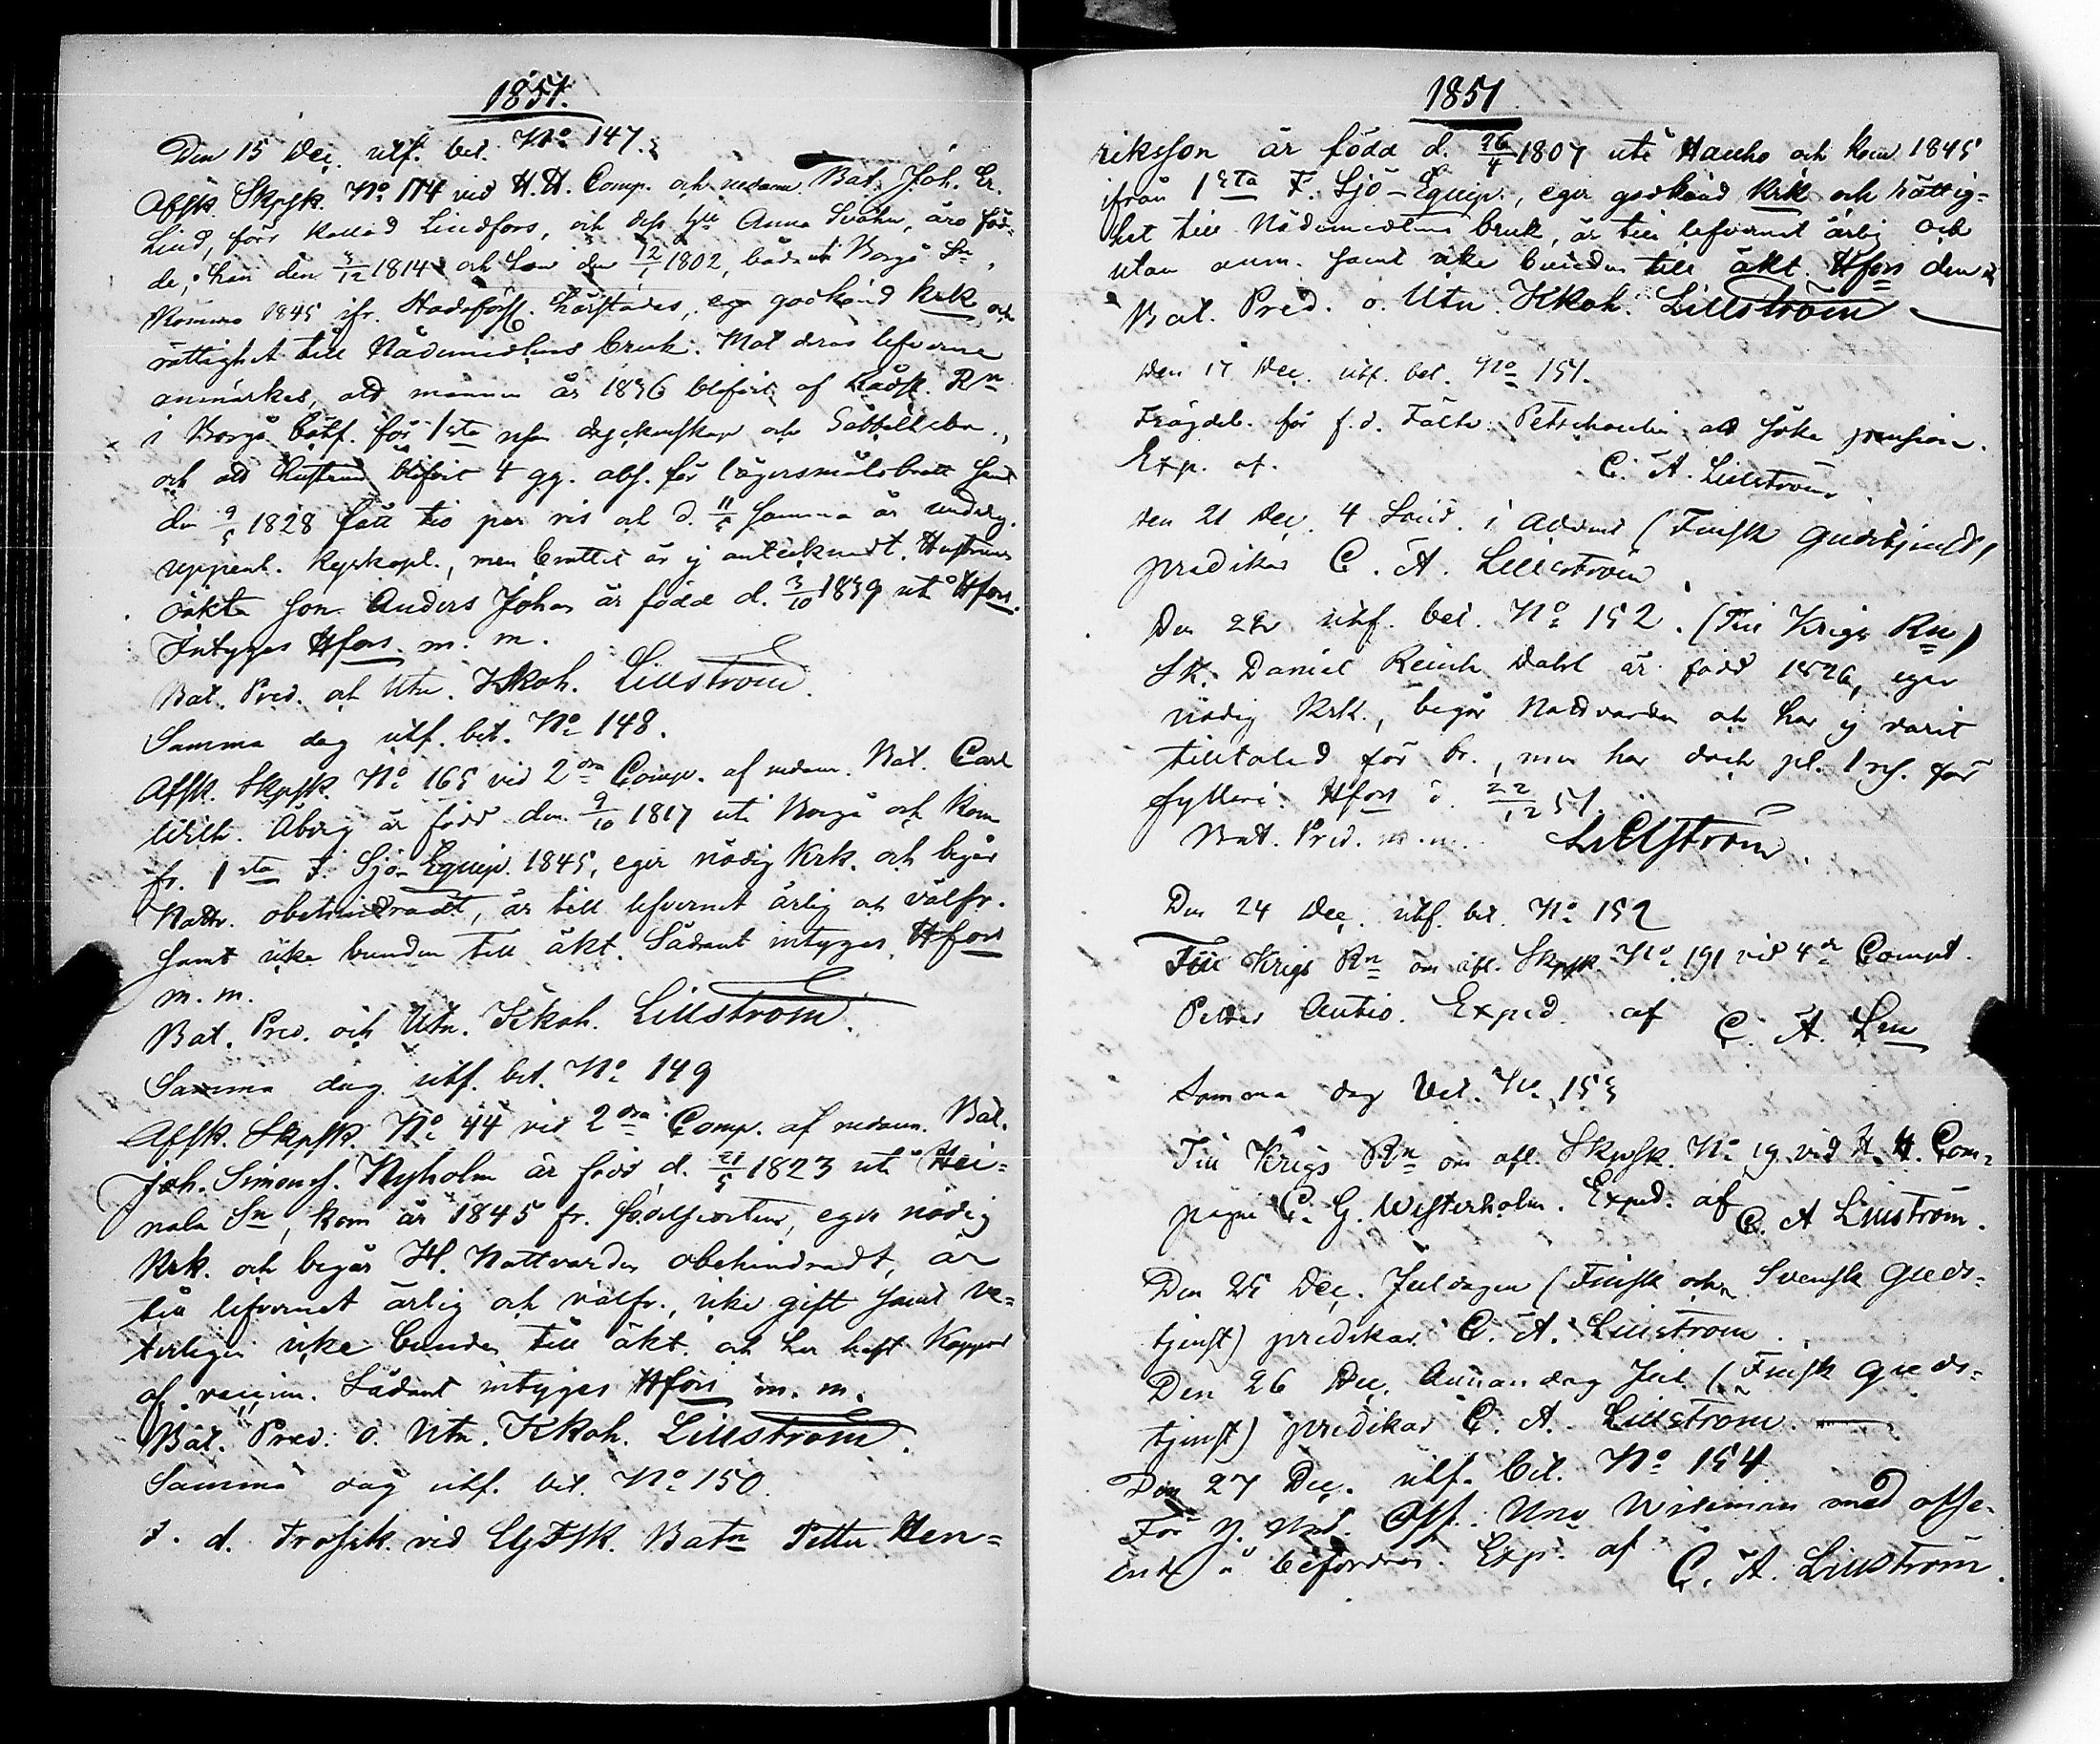 1851.
Den 15 Dec. utf. bet. No 147.
Afsk. Skpsk. No 174 vid H.H. Comp. och nedann. Bat. Joh. Er.
Lind, förr kallad Lindfors, och dess hu Anna Svahn, äro föd=
de, han den 5/12 1814 och hon den 12/1 1802, båda uti Borgå Sn,
komne 1845 ifr. Stadsförs. härstädes, ega godkänd Krk och
rättighet till Nådemedlens bruk. Mot deras lefverne
anmärkes, att mannen år 1836 blifvit af Rådst. Rn
i Borgå bötf. för 1sta resan dryckenskap och Sabb
och att hustrun blifvit 4 gg. abs. för lägersmålsbrott samt
den 9/5 1828 fått tio par ris och d. 11/5 samma år undergr.
uppenb. kyrkopl., men brottet är ej antecknadt. Hustruns
oäkta son Anders Johan är född d. 3/10 1839 uti Hfors.
Intygas Hfors m. m.
Bat. Pred. och Utn. Kkoh. Lillström.
Samma dag utf. bet. No 148.
Afsk. Skpsk. No 165 vid 2dra Comp. af nedann. Bat. Carl
Wilh. Åberg är född den 9/10 1817 uti Borgå och kom
fr. 1sta F. Sjö-Equip. 1845, eger nödig Krk. och begår
Nattv. obehindradt, är till lefvernet ärlig och välfr.
samt icke bunden till äkt. Sådant intygas Hfors
m. m.
Bat. Pred. och Utn. Kkoh. Lillström.
Samma dag utf. bet. No 149
Afsk. Skpsk. No 44 vid 2dra Comp. af nedann. Bat.
Joh. Simons. Nyholm är född d. 21/5 1823 uti Hei=
nola Sn, kom år 1845 fr. födelseorten, eger nödig
Krk. och begår H. Nattvarden obehindradt, är
till lefvernet ärlig och välfr., icke gift samt ve=
terligen icke bunden till äkt. och har haft Koppor
af vaccin. Sådant intygas Hfors m. m.
Bat. Pred. o. Utn. Kkoh. Lillström.
Samma dag utf. bet. No 150.
F. d. Trossk. vid LgFSk. Batn Petter Hen=
1851
riksson är född d. 26/4 1807 uti Hauho och kom 1845
ifrån 1sta F. Sjö-Equip., eger godkänd Krk och rättig=
het till Nådemedlens bruk, är till lefvernet ärlig och
utan anm. samt icke bunden till äkt. Hfors den
Bat. Pred. o. Utn. Kkoh. Lillström
Den 17 Dec. utf. bet. No 151.
Frägdeb. för f. d. Fältv. Petschoulin att söka pension.
Exp. af. C. A. Lillström.
Den 21 Dec. 4 Sönd. i Advent (Finsk gudstjenst)
predikar C. A. Lillström.
Den 22 utf. bet. No 152. (Till Krigs Rn)
Sk. Daniel Reinh. Dahl är född 1826, eger
nödig Krk., begår Nattvarden och har ej varit
tilltalad för br., men har dock pl. 1 rs. för
fylleri. Hfors d. 22/12 51.
Bat. Pred. m. m. Lillström.
Den 24 Dec. utf. bet. No 152
Till Krigs Rn om afl. Skpsk. No 191 vid 4de Compt.
Petter Antio. Exped. af C. A. Lm
Samma dag bet. No 153
Till Krigs Rn om afl. Skpsk. No 19 vid H. H. Com=
pagni C. G. Westerholm. Exped. af C. A Lillström.
Den 25 Dec. Juldagen (Finsk och Svensk guds=
tjenst) predikar C. A. Lillström.
Den 26 Dec. Annandag Jul (Finsk guds=
tjenst) predikar C. A. Lillström.
Den 27 Dec. utf. bet. No 154.
För y. Und. Off. Uno Wideman med afse=
ende å befordran. Exp. af C. A. Lillström.